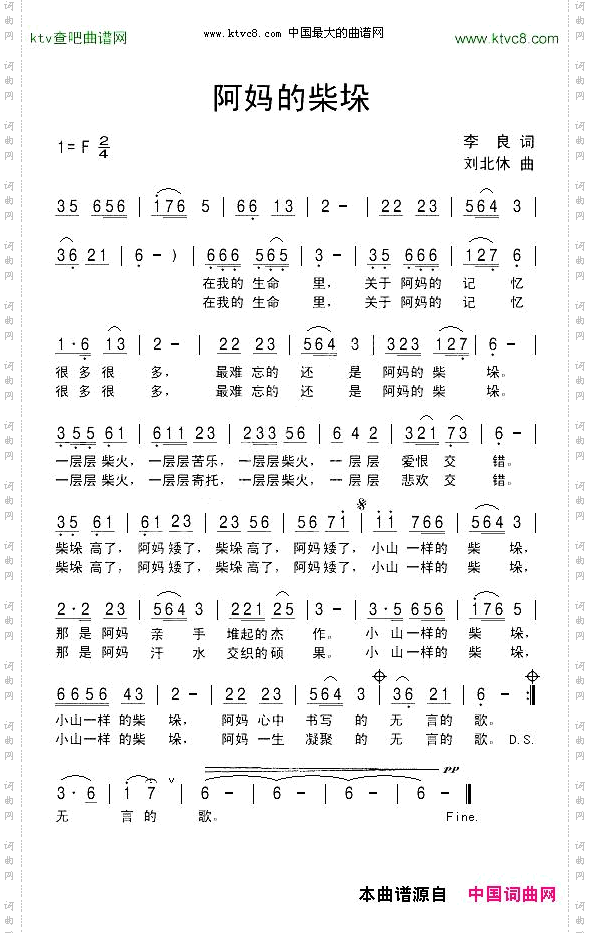 ktv查吧曲谱网 www.ktvc8.com 中国最大的曲谱网 www.ktvc8.com
阿妈的柴垛
1=F 2/4
李 良 词
刘北休 曲
35 656 | 176 5 | 66 13 | 2 - | 22 23 | 564 3 |
36 21 | 6 - ) | 666 565 | 3 - | 35 666 | 127 6 |
在我的 生命 里， 关于 阿妈的 记 忆
在我的 生命 里， 关于 阿妈的 记 忆
1·6 13 | 2 - | 22 23 | 564 3 | 323 127 | 6 - |
很 多 很 多， 最难 忘的 还 是 阿妈的 柴 垛。
很 多 很 多， 最难 忘的 还 是 阿妈的 柴 垛。
355 61 | 611 23 | 233 56 | 64 2 | 321 73 | 6 - |
一层层 柴火，一层层 苦乐，一层层 柴火，一层 层 爱恨 交 错。
一层层 柴火，一层层 寄托，一层层 柴火，一层 层 悲欢 交 错。
35 61 | 61 23 | 23 56 | 56 71 | 11 766 | 564 3 |
柴垛 高了， 阿妈 矮了， 柴垛 高了， 阿妈 矮了， 小山 一样的 柴 垛，
柴垛 高了， 阿妈 矮了， 柴垛 高了， 阿妈 矮了， 小山 一样的 柴 垛，
2·2 23 | 564 3 | 221 25 | 3 - | 3·5 656 | 176 5 |
那 是 阿妈 亲 手 堆起的 杰 作。 小 山 一样的 柴 垛，
那 是 阿妈 汗 水 交织的 硕 果。 小 山 一样的 柴 垛，
6656 43 | 2 - | 22 23 | 564 3 | 36 21 | 6 - :|
小山一样 的柴 垛， 阿妈 心中 书写 的 无 言的 歌。
小山一样 的柴 垛， 阿妈 一生 凝聚 的 无 言的 歌。 D.S.
pp
3·6 | 1 7 ∨ | 6 - | 6 - | 6 - | 6 - ‖
无 言 的 歌。 Fine.
本曲谱源自 中国词曲网